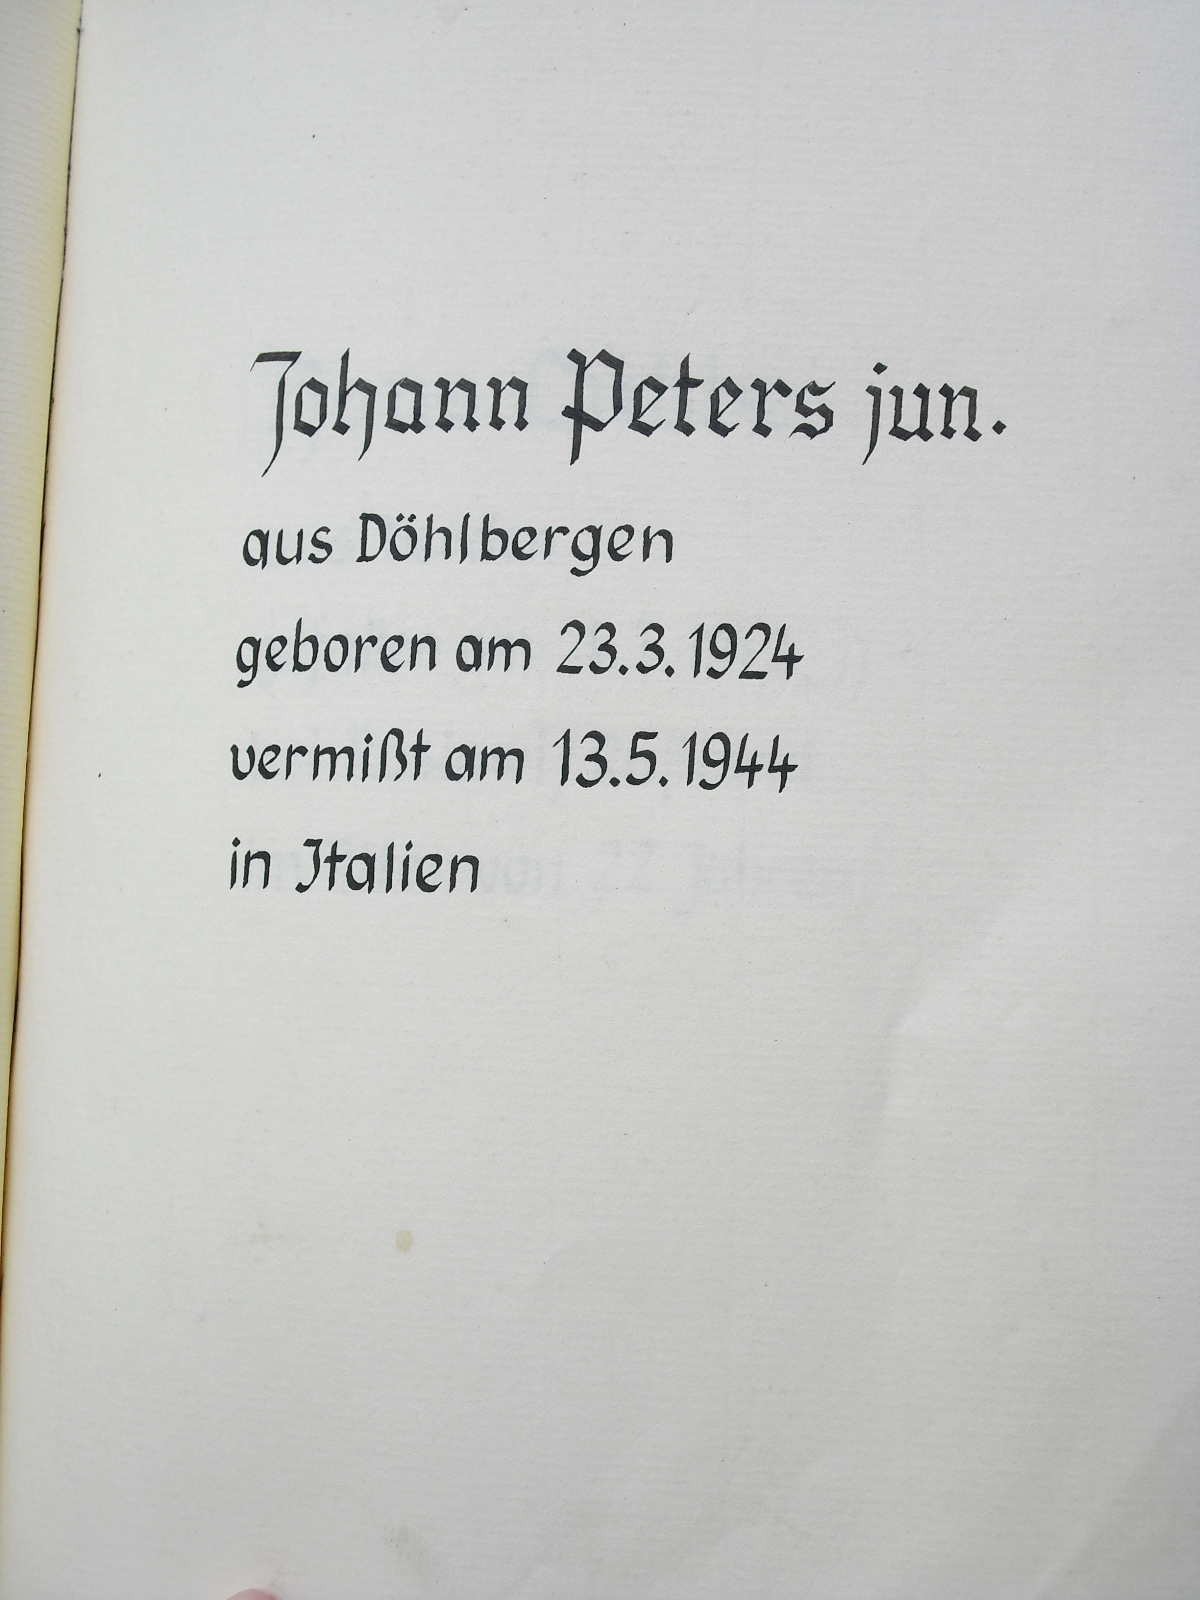 Johann Peters jun.
aus Döhlbergen
geboren am 23.3.1924
vermißt am 13.5.1944
in Italien